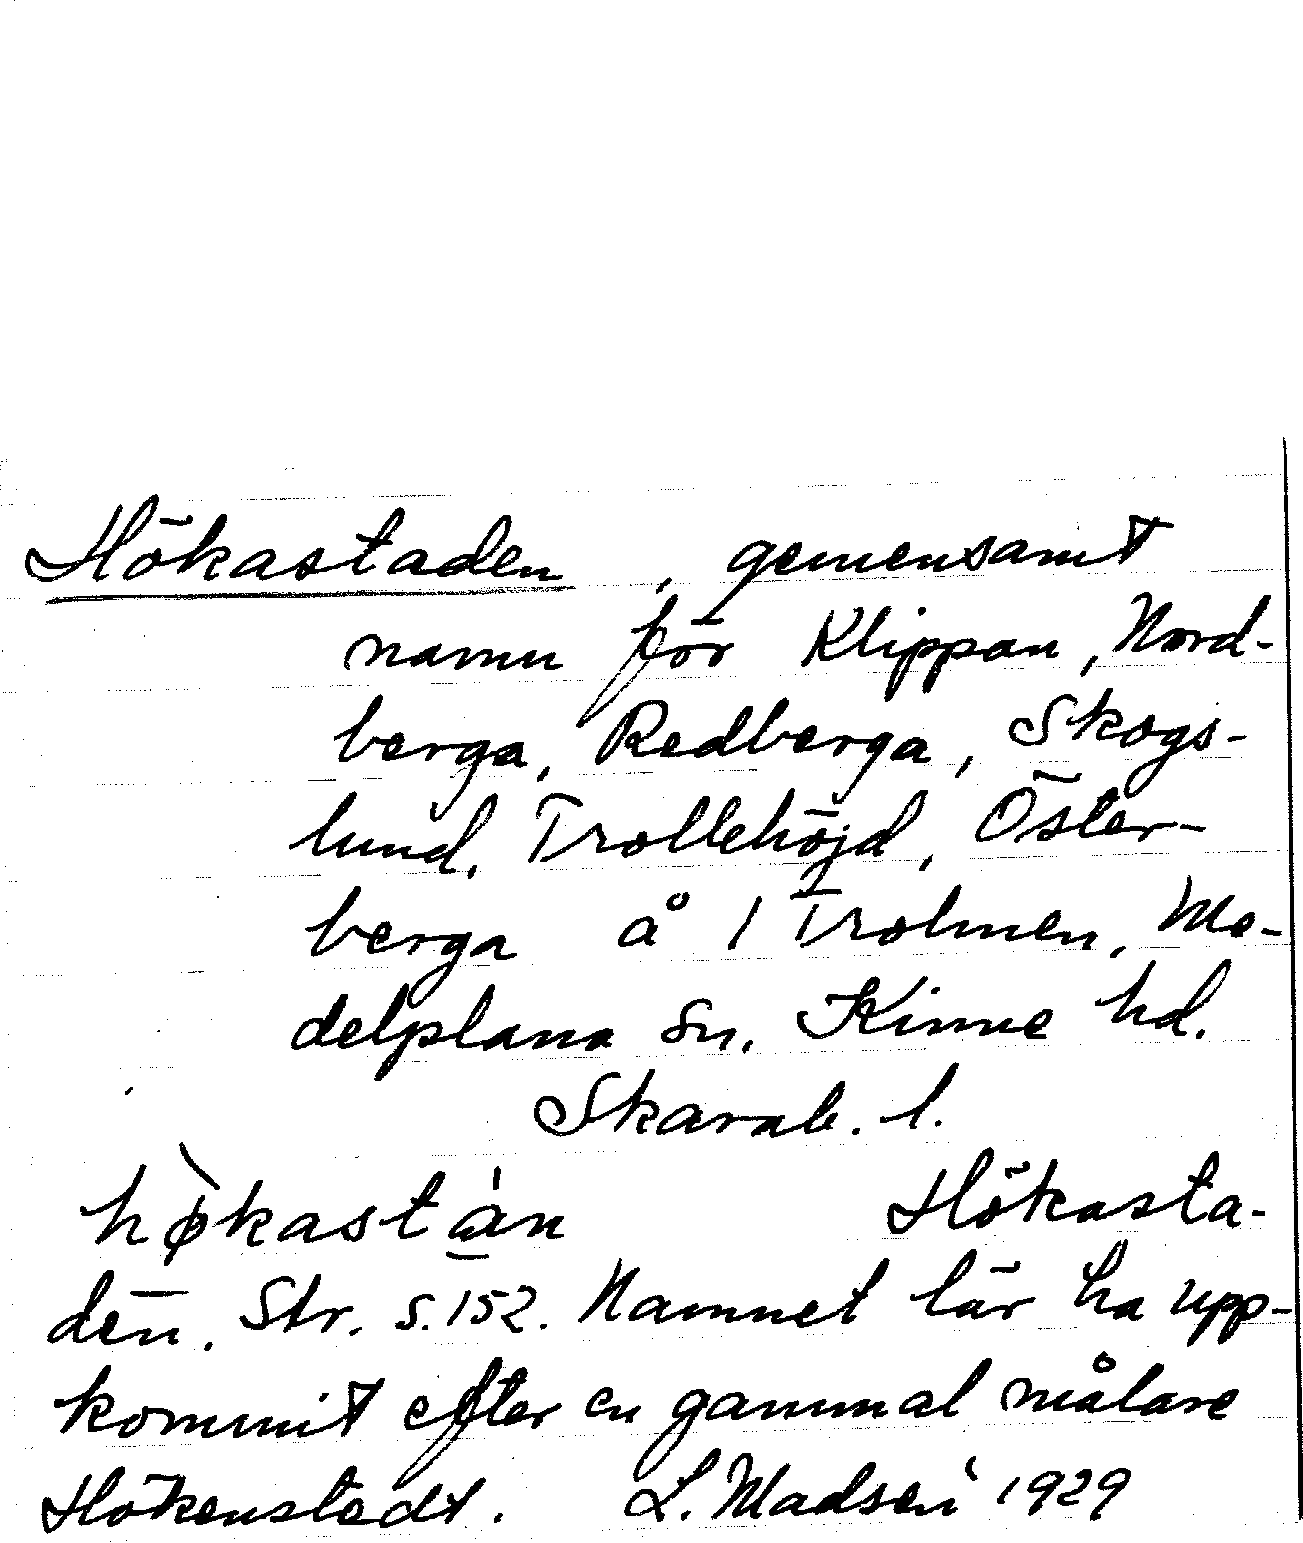 Hökastaden, gemensamt
namn för Klippan, Nord-
berga, Redberga, Skogs-
lund, Trollehöjd, Öster-
berga å 1 Trolmen, Me-
delplana sn. Kinne hd.
Skarab. l.
hø̀kastá̱n Hökasta-
dēn. Str. s. 152. Namnet lär ha upp-
kommit efter en gammal målare
Hökenstedt. L. Madsén 1929